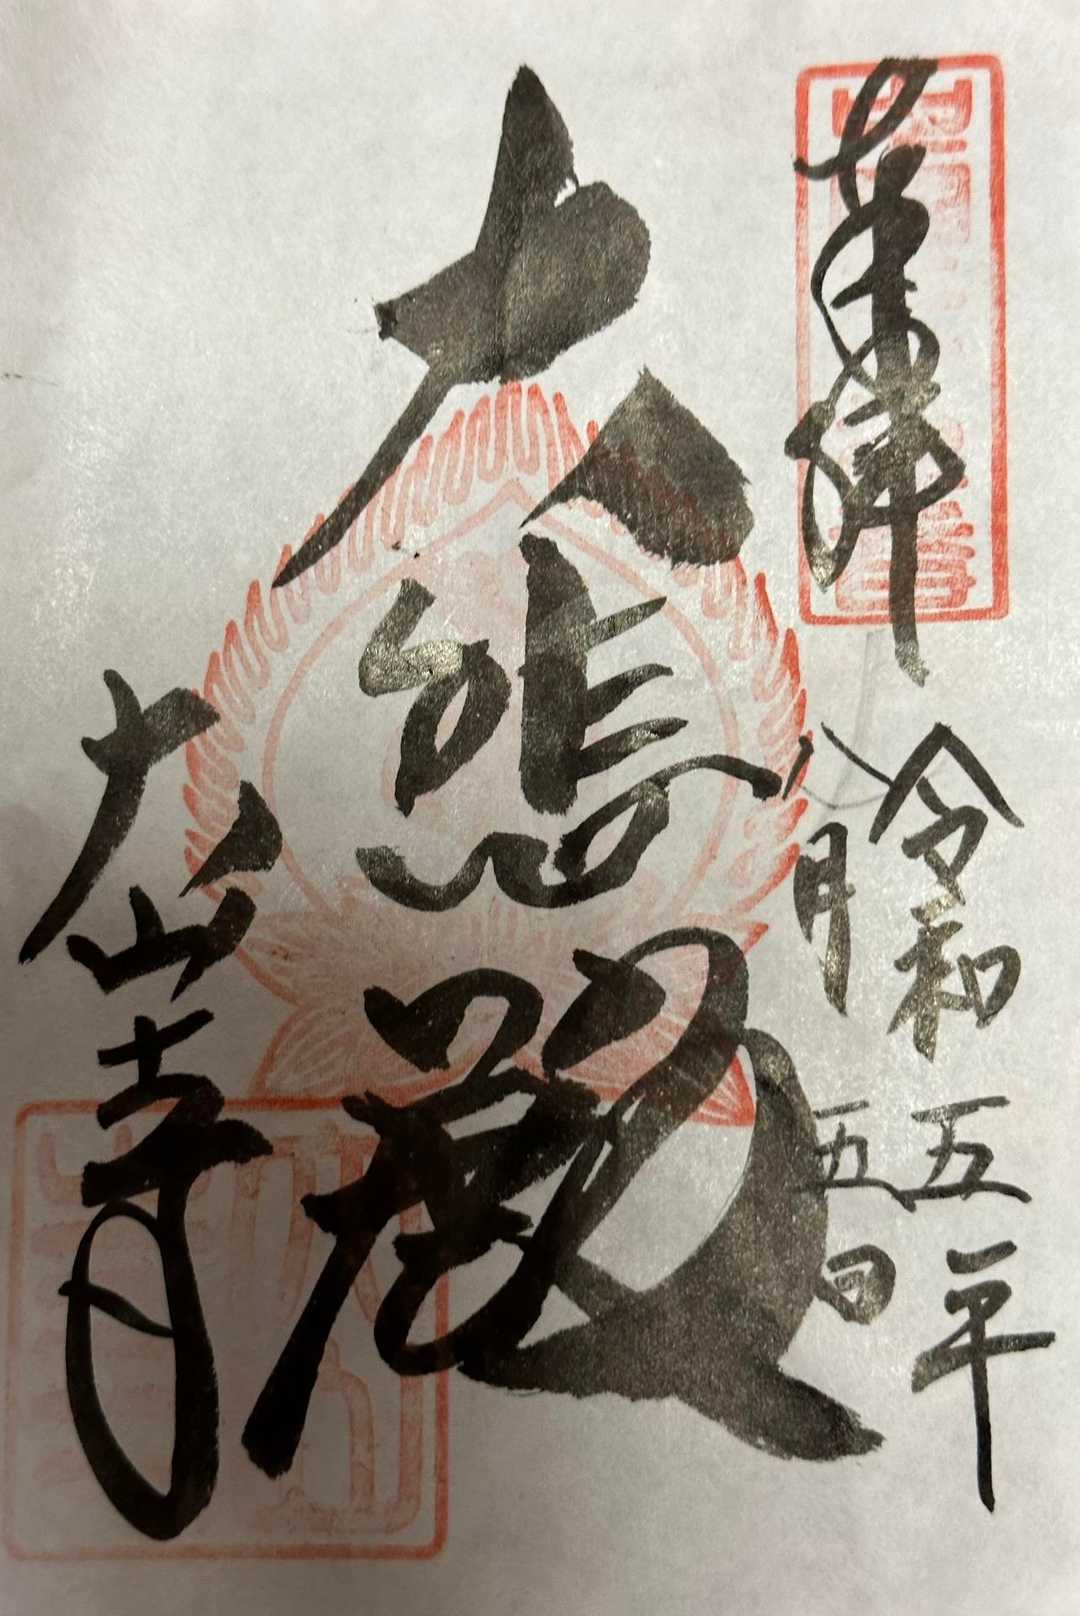 奉拝
令和五年
八月五日
大悲殿
大山寺